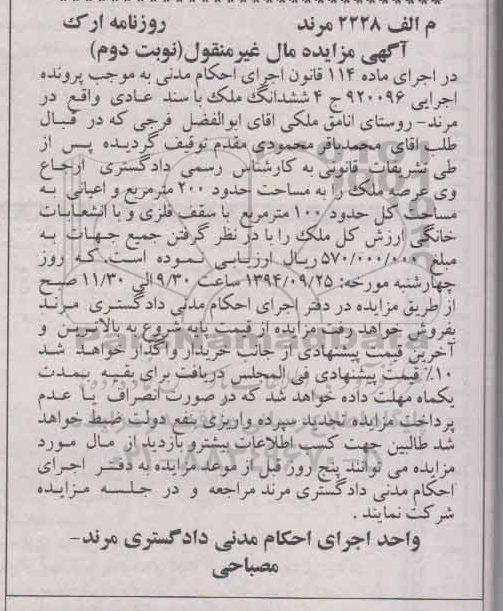 م الف ۲۲۲۸ مرند روزنامه ارک
آگهی مزایده مال غیرمنقول(نوبت دوم)
در اجرای ماده ۱۱۴ قانون اجرای احکام مدنی به موجب پرونده
اجرایی ۹۲۰۰۹۶ ج ۴ ششدانگ ملک با سند عادی واقع در
مرند- روستای انامق ملکی اقای ابوالفضل فرجی که در قبال
طلب اقای محمدباقر محمودی مقدم توقیف گردیده پس از
طی تشریفات قانونی به کارشناس رسمی دادگستری ارجاع
وی عرصه ملک را به مساحت حدود ۲۰۰ مترمربع و اعیانی به
مساحت کل حدود ۱۰۰ مترمربع با سقف فلزی و با انشعابات
خانگی ارزش کل ملک را با در نظر گرفتن جمیع جهات به
مبلغ ۵۷۰/۰۰۰/۰۰۰ ریال ارزیابی نموده است. که روز
چهارشنبه مورخه: ۱۳۹۴/۰۹/۲۵ ساعت ۹/۳۰ الی ۱۱/۳۰ صبح
از طریق مزایده در دفتر اجرای احکام مدنی دادگستری مرند
بفروش خواهد رفت مزایده از قیمت پایه شروع به بالاترین و
آخرین قیمت پیشنهادی از جانب خریدار واگذار خواهد شد
۱۰٪ قیمت پیشنهادی فی المجلس دریافت برای بقیه بمدت
یکماه مهلت داده خواهد شد که در صورت انصراف یا عدم
پرداخت مزایده تجدید سپرده واریزی بنفع دولت ضبط خواهد
شد طالبین جهت کسب اطلاعات بیشتر و بازدید از مال مورد
مزایده می توانند پنج روز قبل از موعد مزایده به دفتر اجرای
احکام مدنی دادگستری مرند مراجعه و در جلسه مزایده
شرکت نمایند .
واحد اجرای احکام مدنی دادگستری مرند-
مصباحی
ParsNamadData
۰۲۱-۸۸۳۴۹۶۷۰-۵